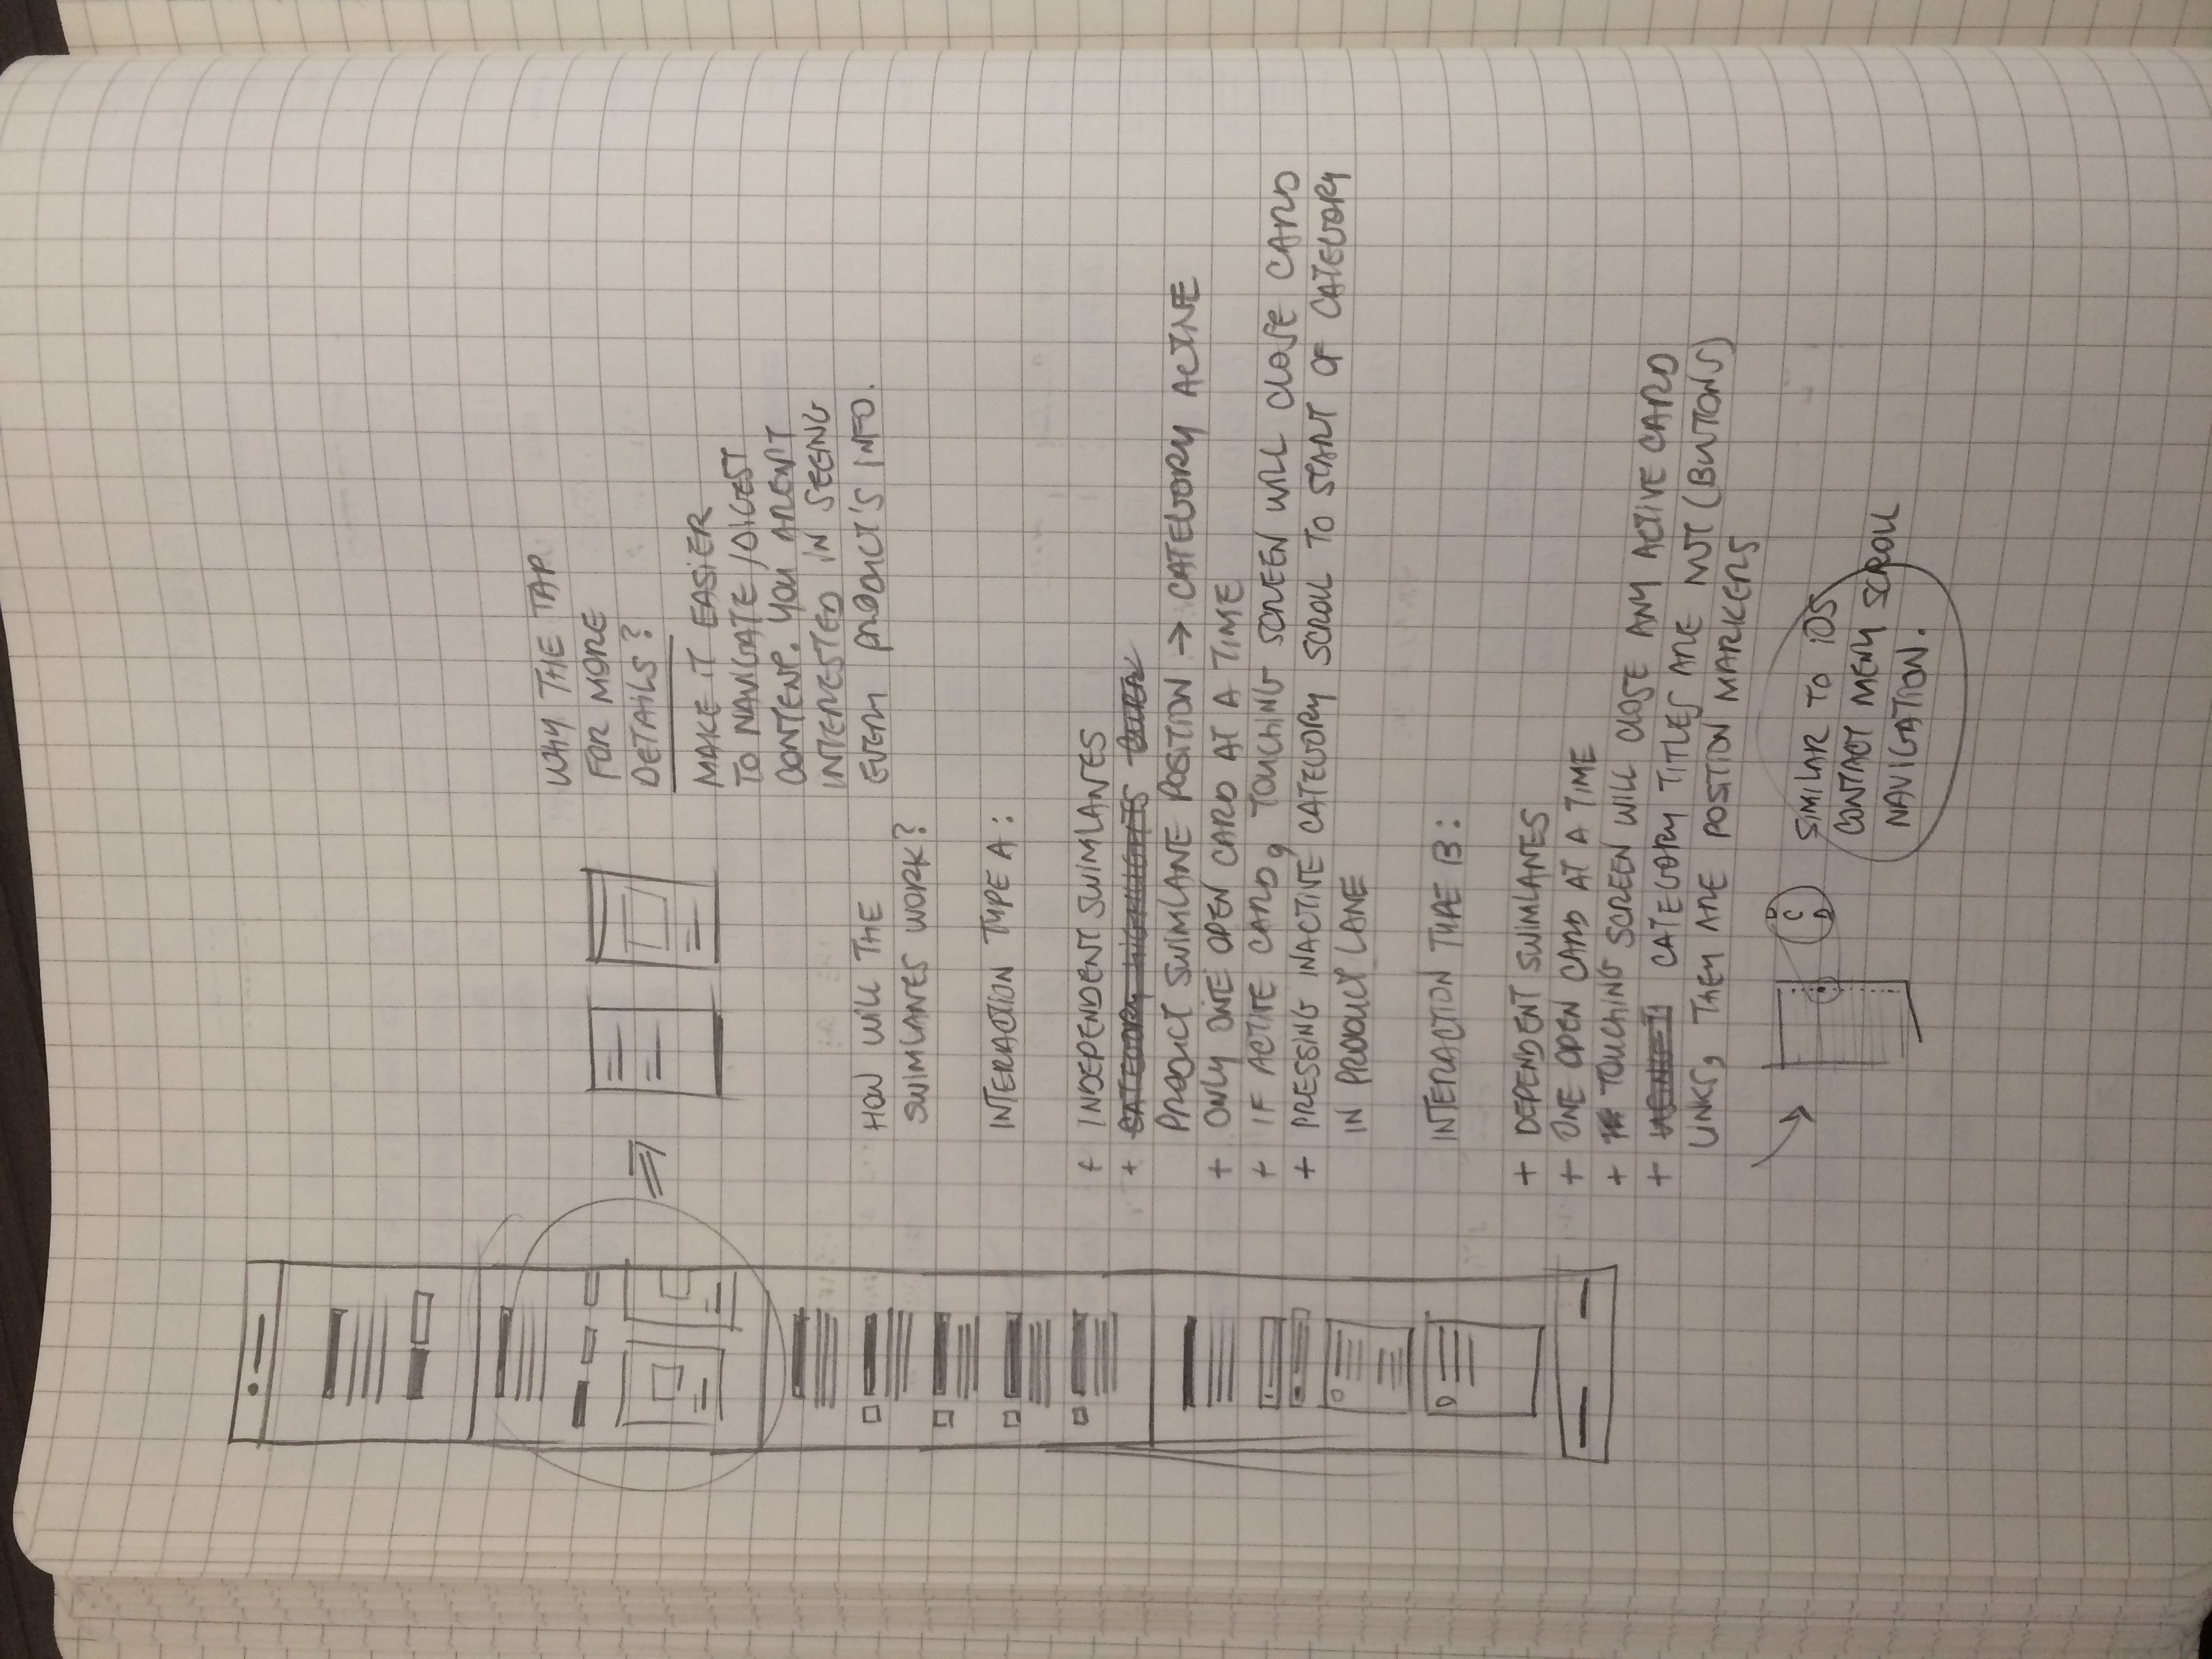 WHY THE TAP
FOR MORE
DETAILS?
MAKE IT EASIER
TO NAVIGATE/DIGEST
CONTENT. YOU AREN'T
INTERESTED IN SEEING
EVERY PRODUCT'S INFO.
HOW WILL THE
SWIMLANES WORK?
INTERACTION TYPE A:
+ INDEPENDENT SWIMLANES
+ CATEGORY HIGHLIGHTS
PRODUCT SWIMLANE POSITION → CATEGORY ACTIVE
+ ONLY ONE OPEN CARD AT A TIME
+ IF ACTIVE CARD, TOUCHING SCREEN WILL CLOSE CARD
+ PRESSING INACTIVE CATEGORY SCROLL TO START OF CATEGORY
IN PRODUCT LANE
INTERACTION TYPE B:
+ DEPENDENT SWIMLANES
+ ONE OPEN CARD AT A TIME
+ TOUCHING SCREEN WILL CLOSE ANY ACTIVE CARD
+ CATEGORY TITLES ARE NOT (BUTTONS)
LINKS, THEY ARE POSITION MARKERS
C
D
SIMILAR TO iOS
CONTACT MENU SCROLL
NAVIGATION.